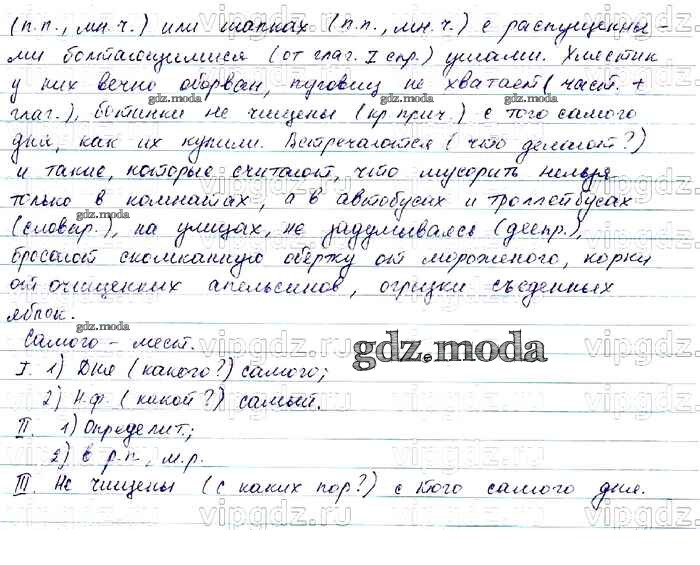 (п.п., мн.ч.) или шапках (п.п., мн.ч.) с распущенны-
ми болтающимися (от глаг. I спр.) ушами. Хлястик
у них вечно оборван, пуговиц не хватает (част. +
глаг.), ботинки не чищены (кр прич.) с того самого
дня, как их купили. Встречаются (что делают?)
и такие, которые считают, что мусорить нельзя
только в комнатах, а в автобусах и троллейбусах
(словар.), на улицах, не задумываясь (деепр.),
бросают скомканную обёртку от мороженого, корки
от очищенных апельсинов, огрызки съеденных
яблок.
Самого – мест.
I. 1) Дня (какого?) самого;
2) Н.ф. (какой?) самый.
II. 1) Определит.;
2) в р.п., м.р.
III. Не чищены (с каких пор?) с того самого дня.
gdz.moda
gdz.moda
gdz.moda
gdz.moda
gdz.moda
gdz.moda
vipgdz.ru